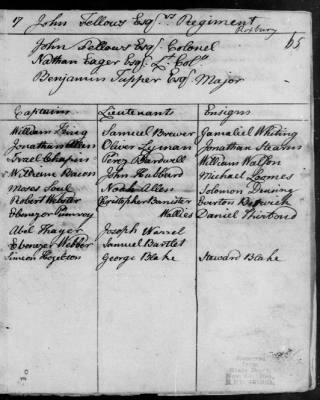 7 John Fellows Esqr. Regiment
Roxbury
65
John Fellows Esqr. Colonel
Nathan Eager Esqr. Lt. Colo.
Benjamin Tupper Esqr. Major
Captains Lieutenants Ensigns
William King Samuel Brewer Gamaliel Whiting
Jonathan Allen Oliver Lyman Jonathan Stearns
Israel Chapin Perez Bardwell William Watson
William Bacon John Hubbard Michael Loomes
Moses Soul Noah Allen Solomon
Robert Webster Christopher Banister Everton
Ebenezer Pumroy Daniel
Abil Thayer Joseph Warrel
Ebenezer Webber Samuel Bartlet
Simeon George Blake Steward Blake